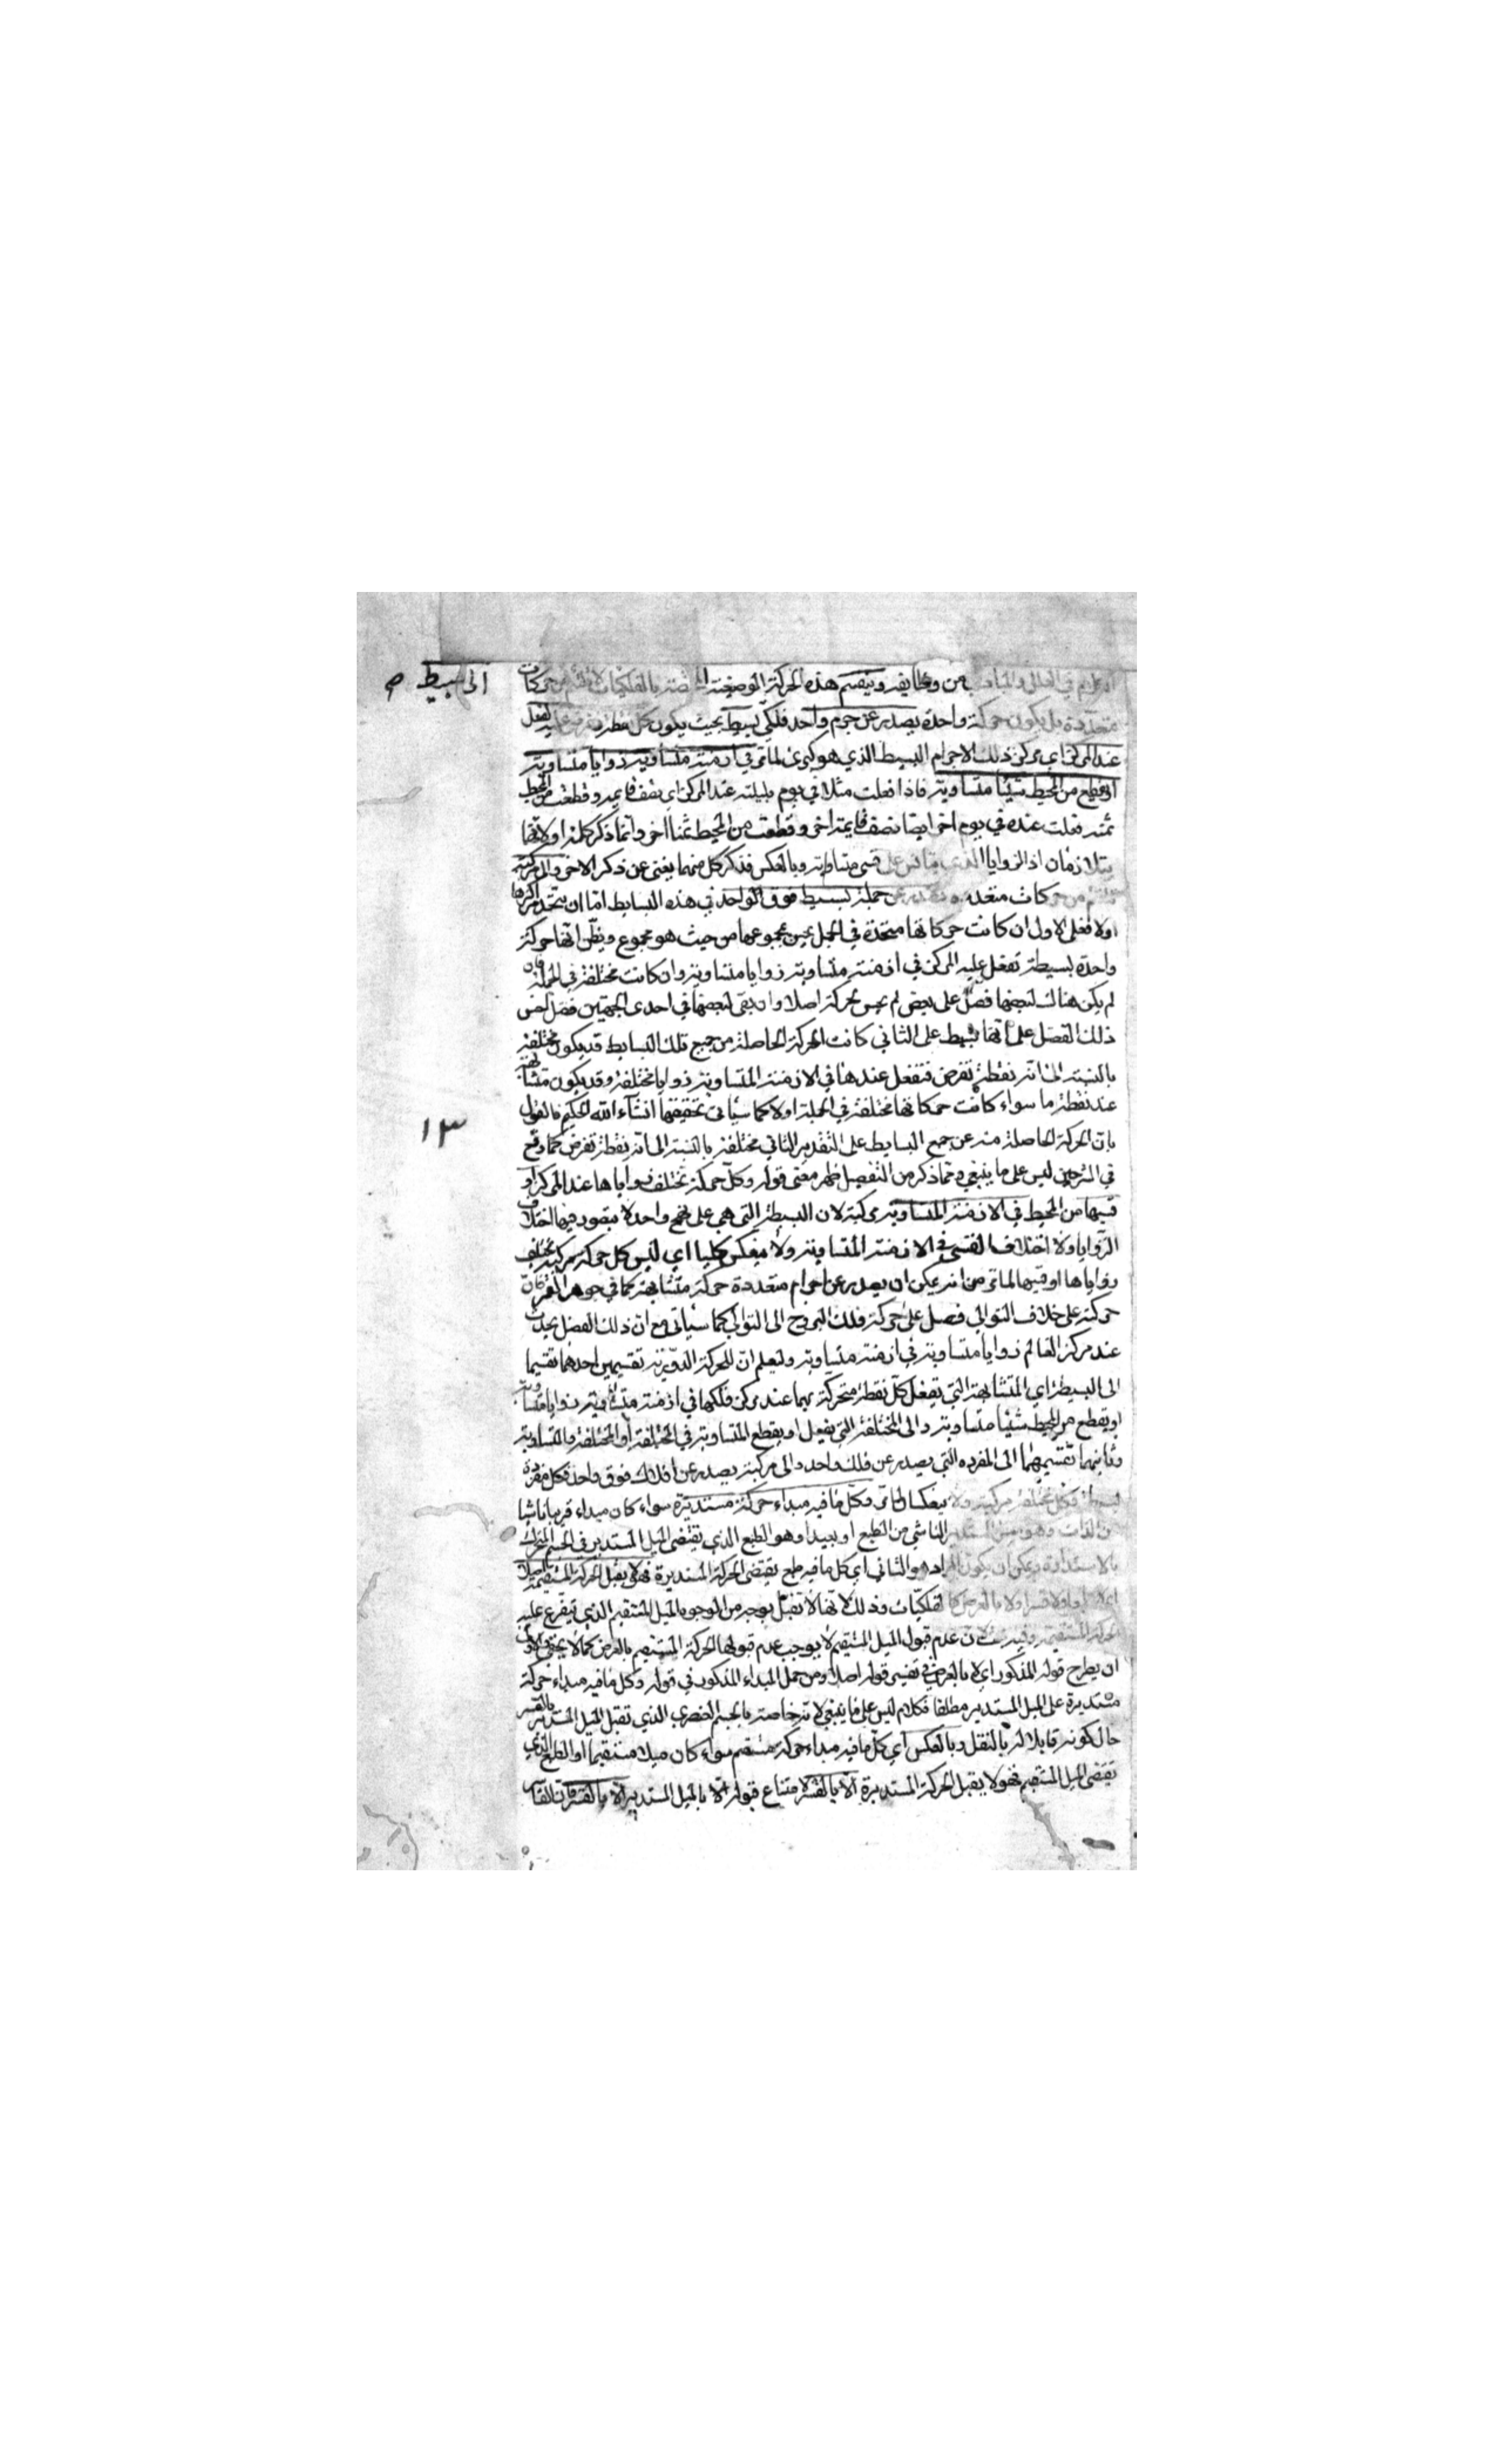 من وظايفه وينقسم هذه الحركة الوضعية
الى بسيطة
بل يكون حركة واحدة يصدر عن جرم واحد فلكي بسيط بحيث يكون كل نقطة
عند المركز اي مركز ذلك الاجرام البسيط الذي هو كرى لما مر في ازمنة متساوية زوايا متساوية
او يقطع من المحيط شيئا متساوية فاذا فعلت مثلا في يوم بليلته عند المركز اي نصف قايمة وقطعت من المحيط
ثمنه فعلت عنده في يوم اخر ايضا نصف قايمة اخرى وقطعت من المحيط ثمنا اخر وانما ذكر كلمة او لانهما
يتلازمان اذ الزوايا قسى متساوية وبالعكس فذكر كل منهما يغنى عن ذكر الاخر والمركبة
حركات متعددة عن جملة بسيط فوق الواحد في هذه البسايط اما ان يتحد مراكزها
اولا فعلى الاول ان كانت حركاتها متحدة في الجهة يحس مجموعها من حيث هو مجموع ويظن انها حركة
واحدة بسيطة تفعل عليه المركز في ازمنة متساوية زوايا متساوية وان كانت مختلفة في الجهة فان
لم يكن هناك لبعضها فضل على بعض لم يحس بحركة اصلا وان بقى لبعضها في احدى الجهتين فضل احس
ذلك الفضل على انها بسيط على الثاني كانت الحركة الحاصلة من جميع تلك البسايط قد يكون مختلفة
بالنسبة الى اية نقطة تفرض فتفعل عندها في الازمنة المتساوية زوايا مختلفة وقد يكون متشابهة
عند نقطة ما سواء كانت حركاتها مختلفة في الجهة اولا كما سياتى تحقيقها انشآء الله الحكيم فالقول
بان الحركة الحاصلة منه عن جميع البسايط على التقدير الثاني مختلفة بالنسبة الى اية نقطة تفرض كما وقع
١٣
في الشرحين ليس على ما ينبغي ومما ذكر من التفصيل ظهر معنى قوله وكل حركة تختلف زواياها عند المركز او
قسيها من المحيط في الازمنة المتساوية مركبة لان البسيطة التي هي على نهج واحد لا يتصور فيها اختلاف
الزوايا ولا اختلاف القسي في الازمنة المتساوية ولا ينعكس كليا اي ليس كل حركة مركبة تختلف
زواياها او قسيها لما مر من انه يمكن ان يصدر عن اجرام متعددة حركة متشابهة كما في جوهر القمر فان
حركته على خلاف التوالي فصل على حركة فلك البروج الى التوالي كما سياتى مع ان ذلك الفضل يحدث
عند مركز العالم زوايا متساوية في ازمنة متساوية ولتعلم ان للحركة الدورية تقسيمين احدهما تقسيمها
الى البسيطة اي المتشابهة التي يفعل كل نقطة متحركة بها عند مركز فلكها في ازمنة متساوية زوايا متساوية
او يقطع من المحيط شيئا متساوية والى المختلفة التي يفعل او يقطع المتساوية في المختلفة او المختلفة والمتساوية
وثانيهما تقسيمها الى المفردة التي يصدر عن فلك واحد والى مركبة يصدر عن افلاك فوق واحد فكل مفردة
بسيطة فكل مختلفة مركبة ولا ينعكسان لما مر وكل ما فيه مبداء حركة مستديرة سواء كان مبداء قريبا ناشيا
الناشي من الطبع او بعيدا وهو الطبع الذي تقتضى الميل المستدير في الجسم المتحرك
بالاستدارة ويمكن ان يكون المراد هو الثاني اي كل ما فيه طبع يقتضى الحركة المستديرة فهو لا يقبل الحركة المستقيمة اصلا
ولا قسرا ولا بالعرض كالفلكيات وذلك لانها لا تقبل بوجه من الوجوه الميل المستقيم الذي يتفرع عليه
الحركة المستقيمة وفيه بحث لان عدم قبول الميل المستقيم لا يوجب عدم قبولها الحركة المستقيم بالعرض كما لا يخفى
ان يطرح قوله المذكور اي لا بالعرض في تفسير قوله اصلا ومن حمل المبداء المذكور في قوله وكل ما فيه مبداء حركة
مستديرة على الميل المستدير مطلقا فكلام ليس على ما ينبغي لانه خاصته بالجسم العنصري الذي تقبل الميل المستدير بالقسر
حال كونه قابلا له بالنقل وبالعكس اي كل ما فيه مبداء حركة مستقيم سواء كان ميلا مستقيما او الطبع الذي
تقتضى الميل المستقيم فهو لا يقبل الحركة المستديرة الا بالقسر لامتناع قبوله الا بالميل المستدير الا بالقسر